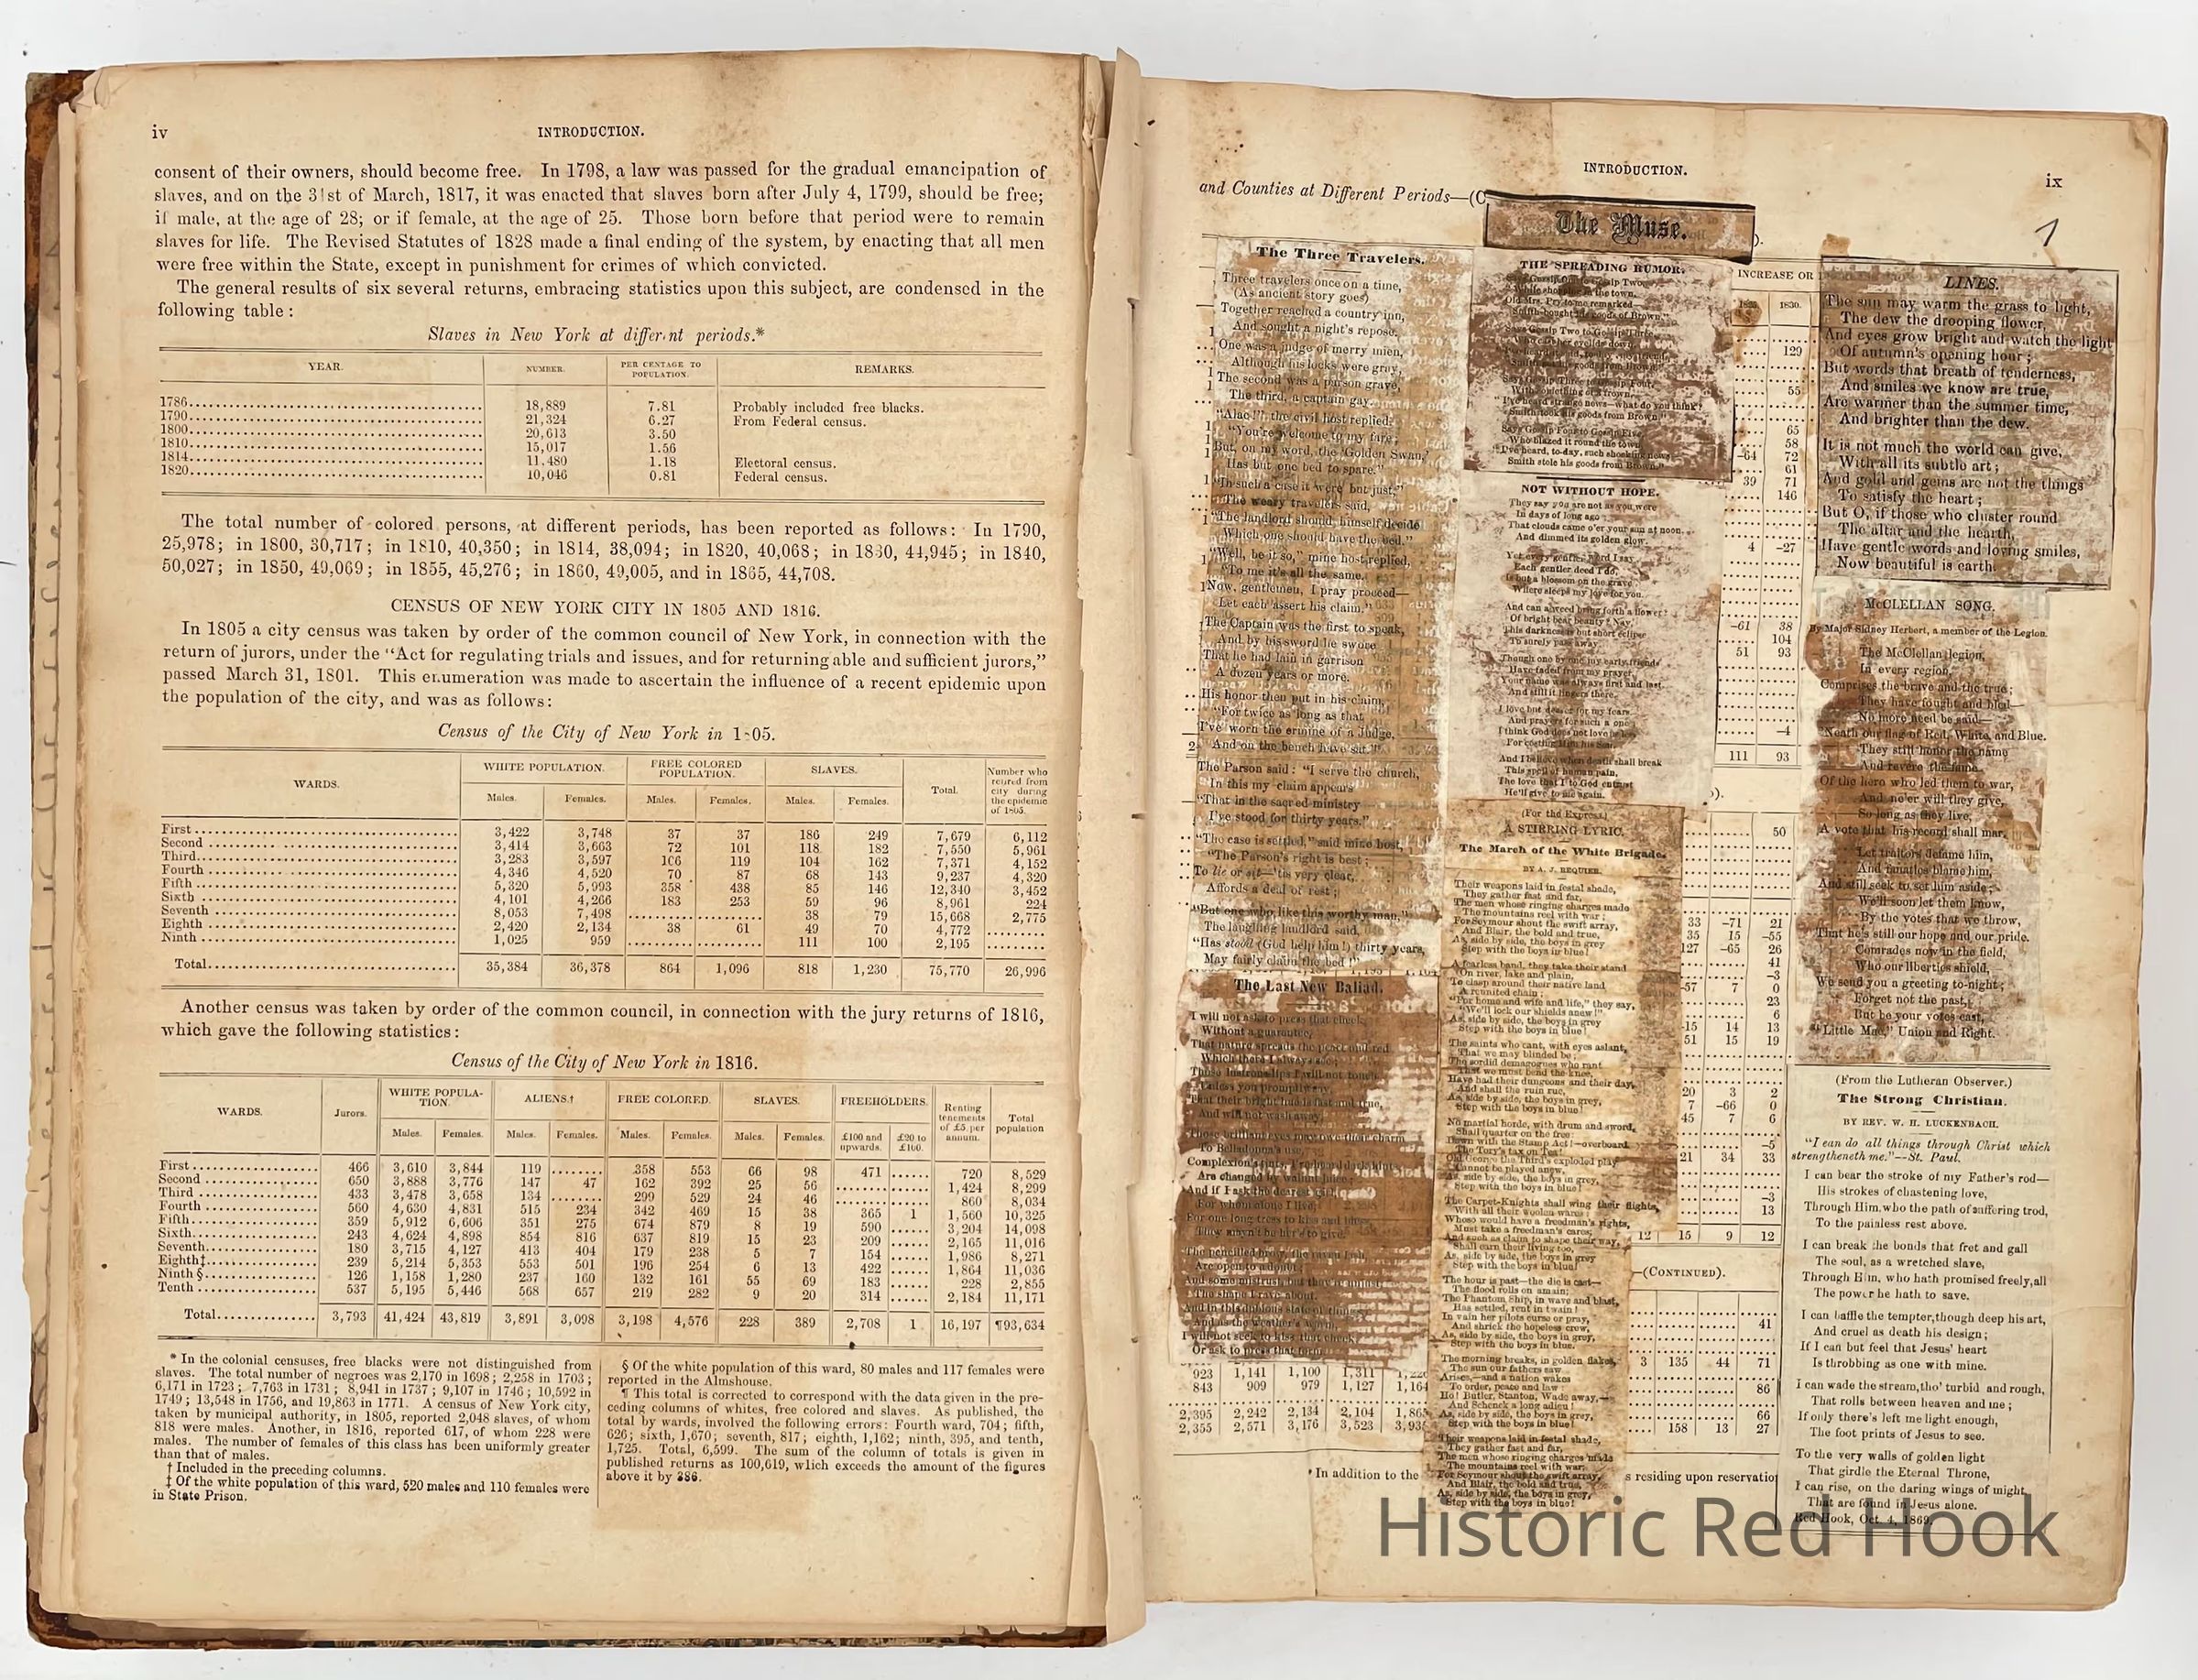 iv
INTRODUCTION.
consent of their owners, should become free. In 1798, a law was passed for the gradual emancipation of
slaves, and on the 31st of March, 1817, it was enacted that slaves born after July 4, 1799, should be free;
if male, at the age of 28; or if female, at the age of 25. Those born before that period were to remain
slaves for life. The Revised Statutes of 1828 made a final ending of the system, by enacting that all men
were free within the State, except in punishment for crimes of which convicted.
The general results of six several returns, embracing statistics upon this subject, are condensed in the
following table:
Slaves in New York at different periods.*
YEAR. NUMBER. PER CENTAGE TO POPULATION. REMARKS.
1786 18,889 7.81 Probably included free blacks.
1790 21,324 6.27 From Federal census.
1800 20,613 3.50
1810 15,017 1.56
1814 11,480 1.18 Electoral census.
1820 10,046 0.81 Federal census.
The total number of colored persons, at different periods, has been reported as follows: In 1790,
25,978; in 1800, 30,717; in 1810, 40,350; in 1814, 38,094; in 1820, 40,068; in 1830, 44,945; in 1840,
50,027; in 1850, 49,069; in 1855, 45,276; in 1860, 49,005, and in 1865, 44,708.
CENSUS OF NEW YORK CITY IN 1805 AND 1816.
In 1805 a city census was taken by order of the common council of New York, in connection with the
return of jurors, under the "Act for regulating trials and issues, and for returning able and sufficient jurors,"
passed March 31, 1801. This enumeration was made to ascertain the influence of a recent epidemic upon
the population of the city, and was as follows:
Census of the City of New York in 1805.
WARDS. WHITE POPULATION. FREE COLORED POPULATION. SLAVES. Total. Number who retired from city during the epidemic of 1805.
Males. Females. Males. Females. Males. Females.
First 3,422 3,748 37 37 186 249 7,679 6,112
Second 3,414 3,663 72 101 118 182 7,550 5,961
Third 3,283 3,597 106 119 104 162 7,371 4,152
Fourth 4,346 4,520 70 87 68 143 9,237 4,320
Fifth 5,320 5,993 358 438 85 146 12,340 3,452
Sixth 4,101 4,266 183 253 59 96 8,961 224
Seventh 8,053 7,498 38 79 15,668 2,775
Eighth 2,420 2,134 38 61 49 70 4,772
Ninth 1,025 959 111 100 2,195
Total 35,384 36,378 864 1,096 818 1,230 75,770 26,996
Another census was taken by order of the common council, in connection with the jury returns of 1816,
which gave the following statistics:
Census of the City of New York in 1816.
WARDS. Jurors. WHITE POPULATION. ALIENS.† FREE COLORED. SLAVES. FREEHOLDERS. Renting tenements of £5 per annum. Total population
Males. Females. Males. Females. Males. Females. Males. Females. £100 and upwards. £20 to £100.
First 466 3,610 3,844 119 358 553 66 98 471 720 8,529
Second 650 3,888 3,776 147 47 162 392 25 56 1,424 8,299
Third 433 3,478 3,658 134 299 529 24 46 860 8,034
Fourth 560 4,630 4,831 515 234 342 469 15 38 365 1 1,560 10,325
Fifth 359 5,912 6,606 351 275 674 879 8 19 590 3,204 14,098
Sixth 243 4,624 4,898 854 816 637 819 15 23 209 2,165 11,016
Seventh 180 3,715 4,127 413 404 179 238 5 7 154 1,986 8,271
Eighth‡ 239 5,214 5,353 553 501 196 254 6 13 422 1,864 11,036
Ninth § 126 1,158 1,280 237 160 132 161 55 69 183 228 2,855
Tenth 537 5,195 5,446 568 657 219 282 9 20 314 2,184 11,171
Total 3,793 41,424 43,819 3,891 3,098 3,198 4,576 228 389 2,708 1 16,197 ¶93,634
* In the colonial censuses, free blacks were not distinguished from
slaves. The total number of negroes was 2,170 in 1698; 2,258 in 1703;
6,171 in 1723; 7,763 in 1731; 8,941 in 1737; 9,107 in 1746; 10,592 in
1749; 13,548 in 1756, and 19,863 in 1771. A census of New York city,
taken by municipal authority, in 1805, reported 2,048 slaves, of whom
818 were males. Another, in 1816, reported 617, of whom 228 were
males. The number of females of this class has been uniformly greater
than that of males.
† Included in the preceding columns.
‡ Of the white population of this ward, 520 males and 110 females were
in State Prison.
§ Of the white population of this ward, 80 males and 117 females were
reported in the Almshouse.
¶ This total is corrected to correspond with the data given in the pre-
ceding columns of whites, free colored and slaves. As published, the
total by wards, involved the following errors: Fourth ward, 704; fifth,
626; sixth, 1,670; seventh, 817; eighth, 1,162; ninth, 395, and tenth,
1,725. Total, 6,599. The sum of the column of totals is given in
published returns as 100,619, which exceeds the amount of the figures
above it by 386.
INTRODUCTION.
ix
and Counties at Different Periods—(C
1
The Muse.
The Three Travelers.
Three travelers once on a time,
(As ancient story goes)
Together reached a country inn,
And sought a night's repose.
One was a judge of merry mien,
Although his locks were gray,
The second was a parson grave,
The third, a captain gay.
"Alac!" the civil host replied,
"You're welcome to my fare;
But, on my word, the 'Golden Swan,'
Has but one bed to spare."
"In such a case it were but just,"
The weary travelers said,
"The landlord should himself decide
Which one should have the bed."
"Well, be it so," mine host replied,
"To me it's all the same.
Now, gentlemen, I pray proceed—
Let each assert his claim."
The Captain was the first to speak,
And by his sword he swore
That he had lain in garrison
A dozen years or more.
His honor then put in his claim,
"For twice as long as that
I've worn the ermine of a Judge,
And on the bench have sat."
The Parson said: "I serve the church,
In this my claim appears
"That in the sacred ministry
I've stood for thirty years."
"The case is settled," said mine host,
"The Parson's right is best;
To lie or sit—'tis very clear,
Affords a deal of rest;
"But one who, like this worthy man,"
The laughing landlord said,
"Has stood (God help him!) thirty years,
May fairly claim the bed!"
The Last New Ballad.
I will not ask to press that cheek,
Without a guarantee,
That nature spreads the
Which there I always see;
And will not wash away.
To Belladonna's use,
Are changed by walnut juice;
And if I ask the dearest girl,
For whom alone I live,
For one long tress to kiss and bless,
They mayn't be hers to give.
The shape I rave about.
I will not seek to kiss that cheek,
Or ask to press that form.
923 1,141 1,100 1,311
843 909 979 1,127 1,164
2,395 2,242 2,134 2,104 1,865
2,355 2,571 3,176 3,523
* In addition to the
THE SPREADING RUMOR.
Says Gossip One to Gossip Two,
While shopping in the town,
Old Mrs. Pry to me remarked—
Smith bought his goods of Brown."
Says Gossip Two to Gossip Three,
Says Gossip Three to Gossip Four,
"I've heard strange news—what do you think?
Smith took his goods from Brown."
Says Gossip Four to Gossip Five,
Who blazed it round the town,
"I've heard, to-day, such shocking news—
Smith stole his goods from Brown."
NOT WITHOUT HOPE.
They say you are not as you were
In days of long ago;
That clouds came o'er your sun at noon,
And dimmed its golden glow.
Yet every gentler word I say,
Each gentler deed I do,
Is but a blossom on the grave
Where sleeps my love for you.
And can a weed bring forth a flower?
Of bright bear beauty? Nay,
This darkness is but short eclipse
To surely pass away.
Though one by one my early friends
Have faded from my prayer,
Your name was always first and last,
And still it lingers there.
I love but dearer for my fears
And prayers for such a one,
I think God does not love
And I believe when death shall break
This spell of human pain,
The love that I to God entrust
He'll give to me again.
(For the Express.)
A STIRRING LYRIC.
The March of the White Brigade.
BY A. J. REQUIER.
Their weapons laid in festal shade,
They gather fast and far,
The men whose ringing charges made
The mountains reel with war;
For Seymour shout the swift array,
And Blair, the bold and true,
As, side by side, the boys in grey
Step with the boys in blue!
A fearless band, they take their stand
On river, lake and plain,
To clasp around their native land
A reunited chain;
"For home and wife and life," they say,
"We'll lock our shields anew!"
As, side by side, the boys in grey
Step with the boys in blue!
The saints who cant, with eyes aslant,
That we may blinded be;
The sordid demagogues who rant
That we must bend the knee,
Have had their dungeons and their day,
And shall the ruin rue,
As, side by side, the boys in grey,
Step with the boys in blue!
No martial horde, with drum and sword,
Shall quarter on the free;
Down with the Stamp Act!—overboard
The Tory's tax on Tea!
Old George the Third's exploded play
Cannot be played anew,
As, side by side, the boys in grey,
Step with the boys in blue!
The Carpet-Knights shall wing their flights,
With all their woolen wares;
Whoso would have a freedman's rights,
Must take a freedman's cares;
And such as claim to shape their way,
Shall earn their living too,
As, side by side, the boys in grey
Step with the boys in blue!
The hour is past—the die is cast—
The flood rolls on amain;
The Phantom Ship, in wave and blast,
Has settled, rent in twain!
In vain her pilots curse or pray,
And shriek the hopeless crew,
As, side by side, the boys in grey,
Step with the boys in blue.
The morning breaks, in golden flakes,
The sun our fathers saw
Arises,—and a nation wakes
To order, peace and law
Ho! Butler, Stanton, Wade away,—
And Schenck a long adieu!
As, side by side, the boys in grey,
Step with the boys in blue!
Their weapons laid in festal shade,
They gather fast and far,
The men whose ringing charges made
The mountains reel with war;
For Seymour shout the swift array,
And Blair, the bold and true,
As, side by side, the boys in grey,
Step with the boys in blue!
INCREASE OR
1830.
129
55
65
58
-64 72
61
39 71
146
4 -27
-61 38
104
51 93
-4
111 93
50
33 -71 21
35 15 -55
127 -65 26
41
-3
-57 7 0
23
6
-15 14 13
51 15 19
20 3 2
7 -66 0
45 7 6
-5
21 34 33
-3
13
12 15 9 12
—(CONTINUED).
41
3 135 44 71
86
66
158 13 27
s residing upon reservatio
LINES.
The sun may warm the grass to light,
The dew the drooping flower,
And eyes grow bright and watch the light
Of autumn's opening hour;
But words that breath of tenderness,
And smiles we know are true,
Are warmer than the summer time,
And brighter than the dew.
It is not much the world can give,
With all its subtle art;
And gold and gems are not the things
To satisfy the heart;
But O, if those who cluster round
The altar and the hearth,
Have gentle words and loving smiles,
Now beautiful is earth.
McCLELLAN SONG.
By Major Sidney Herbert, a member of the Legion.
The McClellan legion,
In every region,
Comprises the brave and the true;
They have fought and bled—
No more need be said—
'Neath our flag of Red, White, and Blue.
They still honor the name
And revere the fame
Of the hero who led them to war,
And ne'er will they give,
So long as they live,
A vote that his record shall mar.
Let traitors defame him,
And fanatics blame him,
And still seek to set him aside;
We'll soon let them know,
By the votes that we throw,
That he's still our hope and our pride.
Comrades now in the field,
Who our liberties shield,
We send you a greeting to-night;
Forget not the past,
But be your votes cast,
"Little Mac," Union and Right.
(From the Lutheran Observer.)
The Strong Christian.
BY REV. W. H. LUCKENBACH.
"I can do all things through Christ which
strengtheneth me."--St. Paul.
I can bear the stroke of my Father's rod—
His strokes of chastening love,
Through Him, who the path of suffering trod,
To the painless rest above.
I can break the bonds that fret and gall
The soul, as a wretched slave,
Through Him, who hath promised freely, all
The power he hath to save.
I can baffle the tempter, though deep his art,
And cruel as death his design;
If I can but feel that Jesus' heart
Is throbbing as one with mine.
I can wade the stream, tho' turbid and rough,
That rolls between heaven and me;
If only there's left me light enough,
The foot prints of Jesus to see.
To the very walls of golden light
That girdle the Eternal Throne,
I can rise, on the daring wings of might,
That are found in Jesus alone.
Red Hook, Oct. 4, 1869.
Historic Red Hook